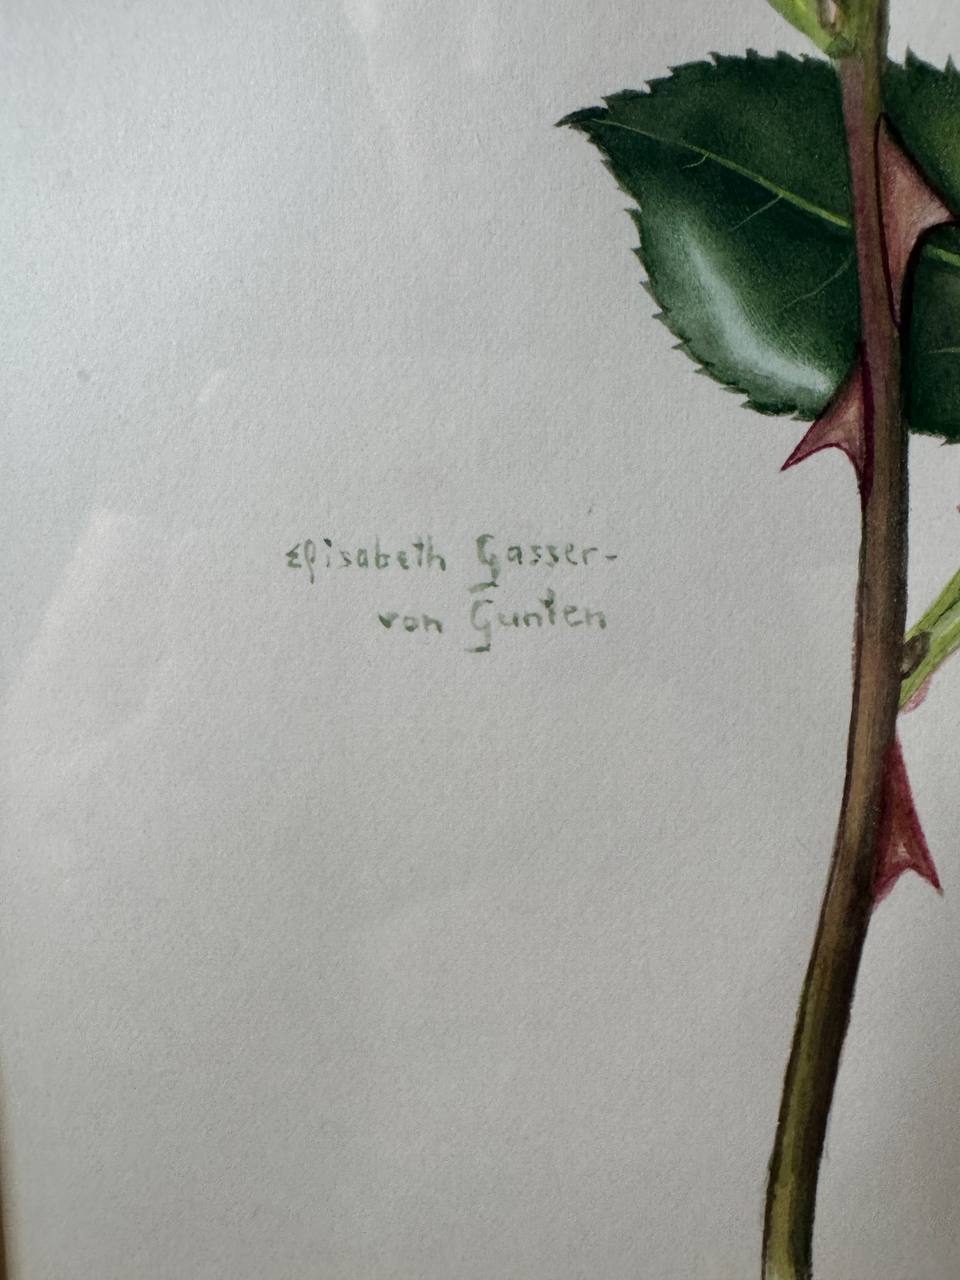 Elisabeth Gasser-
von Gunten